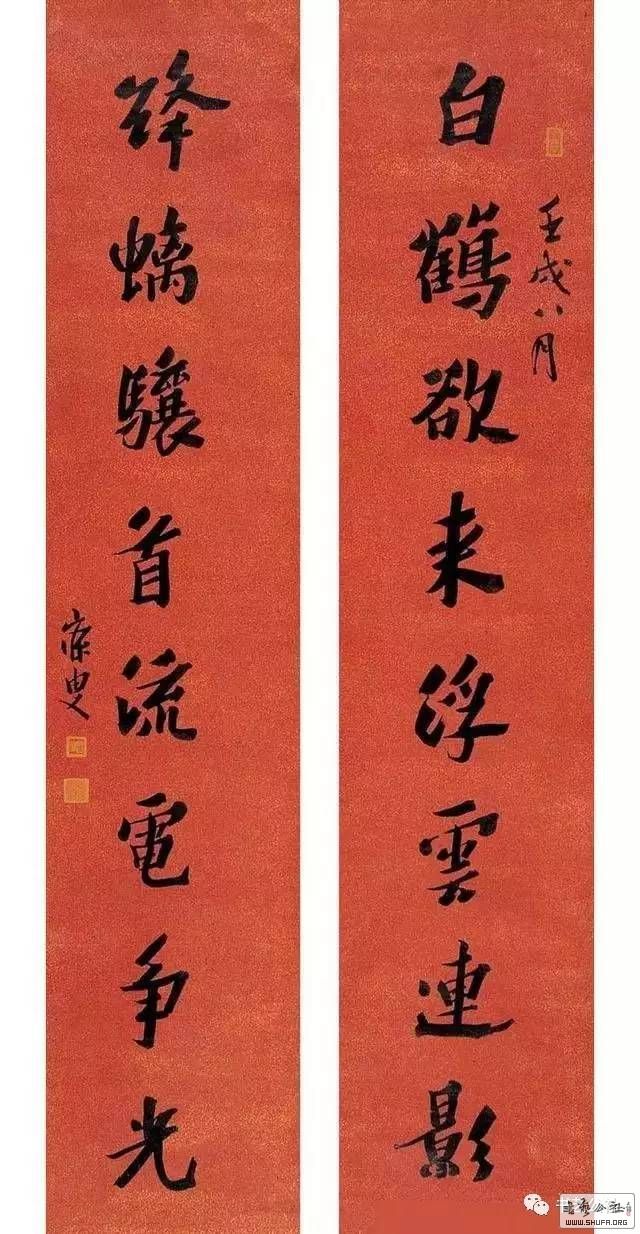 白鶴欲来浮雲連影
壬戌八月
絳螭驤首流電争光
寐叟
WWW.SHUFA.ORG